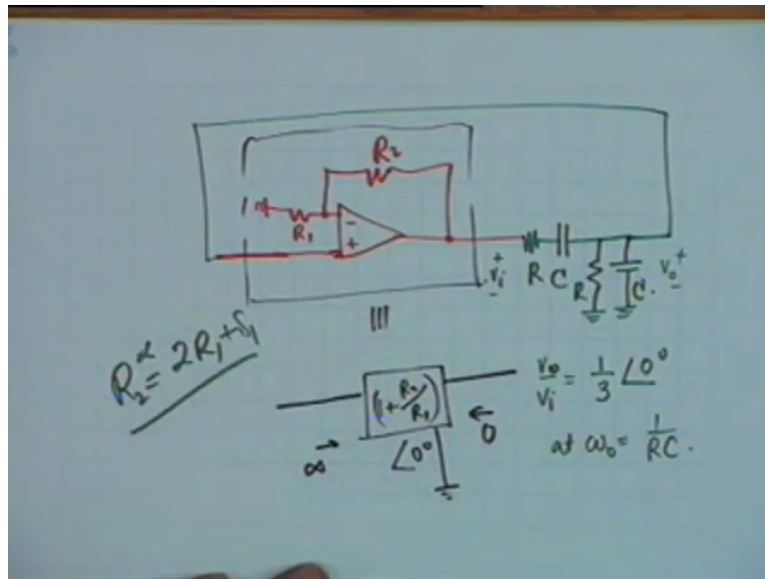 R₂
R₁
-
+
+
vᵢ
-
R C
R
C.
v₀ +
-
|||
R₂ ≅ 2R₁ + δ₁
(1 + R₂/R₁)
∠0°
∞ →
← 0
v₀/vᵢ = 1/3 ∠0°
at ω₀ = 1/RC.